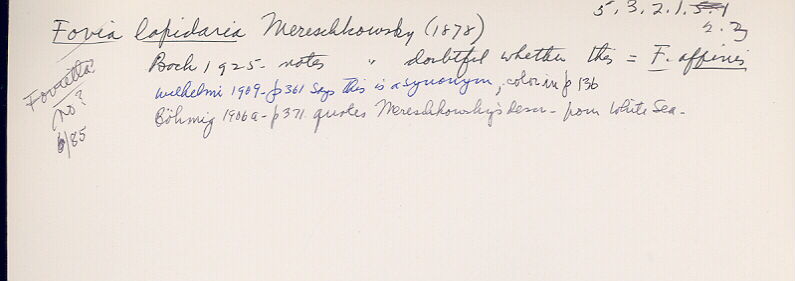 5.3.2.1.5.1
2.3
Fovia lapidaria Mereschkowsky (1878)
Bock 1925 - notes " doubtful whether this = F. affinis
Wilhelmi 1909 - p 361 says this is a synonym, color in p 136
Böhmig 1906a - p 371 quotes Mereschkowsky's descr - from White Sea -
no?
6/85